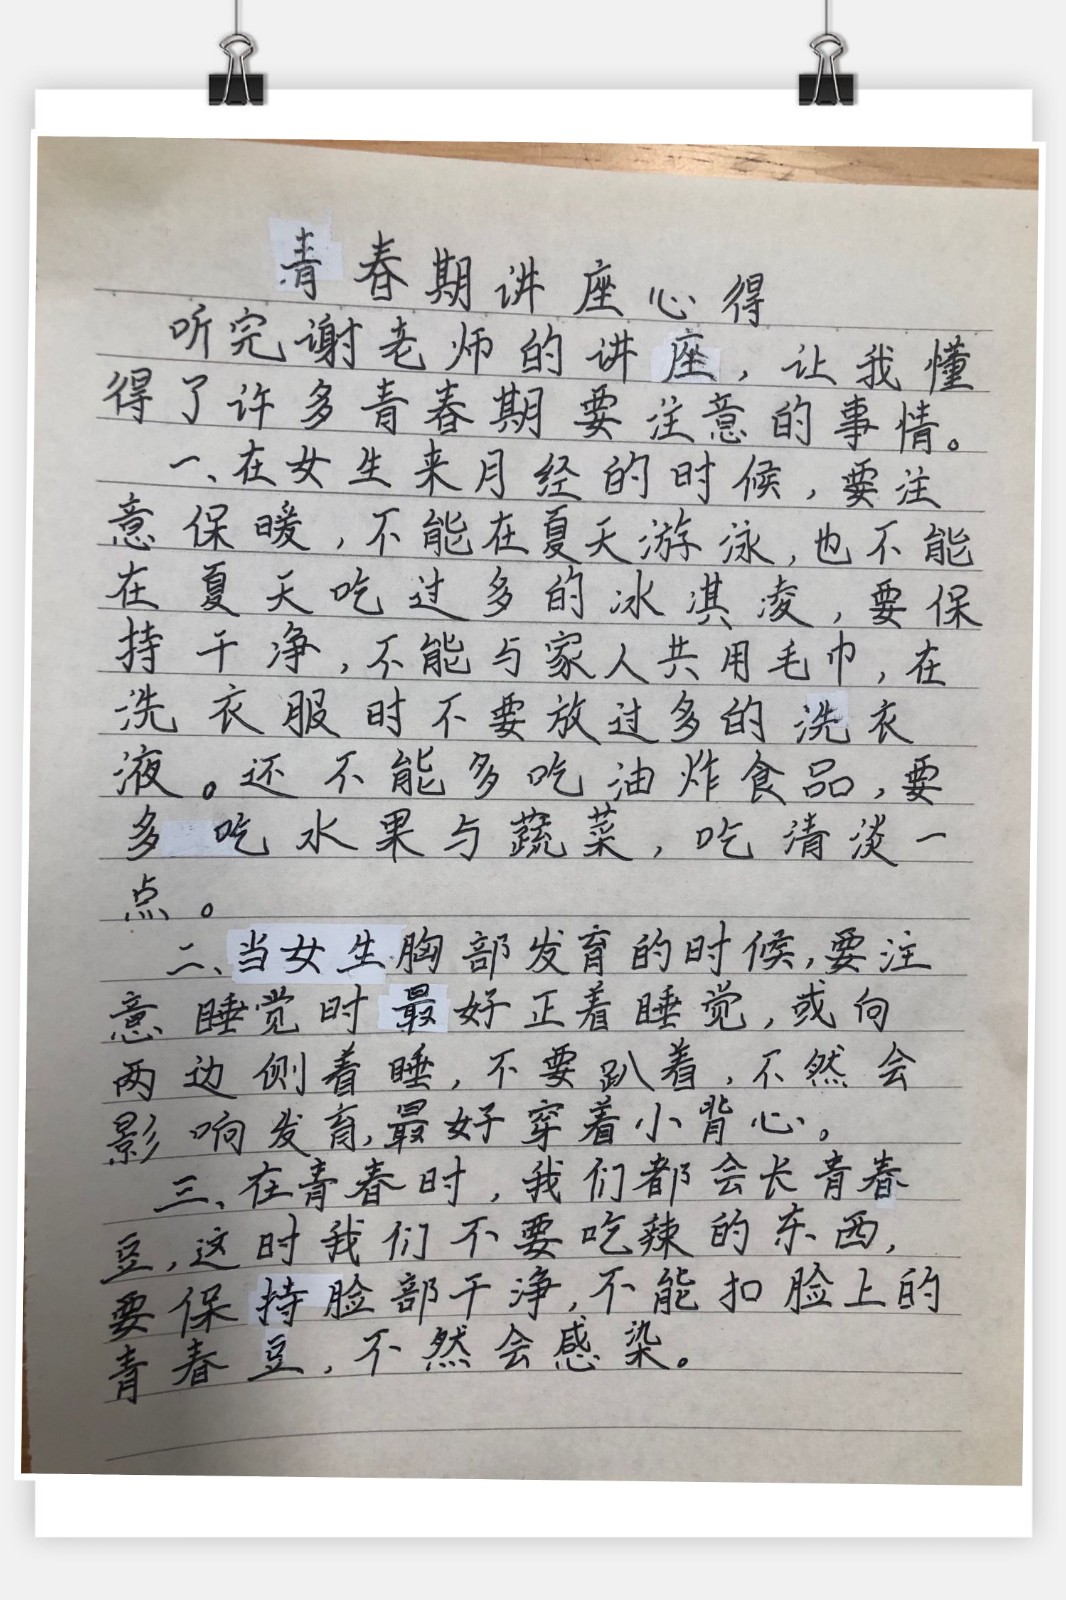 青春期讲座心得
听完谢老师的讲座，让我懂
得了许多青春期要注意的事情。
一、在女生来月经的时候，要注
意保暖，不能在夏天游泳，也不能
在夏天吃过多的冰淇凌，要保
持干净，不能与家人共用毛巾，在
洗衣服时不要放过多的洗衣
液。还不能多吃油炸食品，要
多吃水果与蔬菜，吃清淡一
点。
二、当女生胸部发育的时候，要注
意睡觉时最好正着睡觉，或向
两边侧着睡，不要趴着，不然会
影响发育，最好穿着小背心。
三、在青春时，我们都会长青春
豆，这时我们不要吃辣的东西，
要保持脸部干净，不能扣脸上的
青春豆，不然会感染。